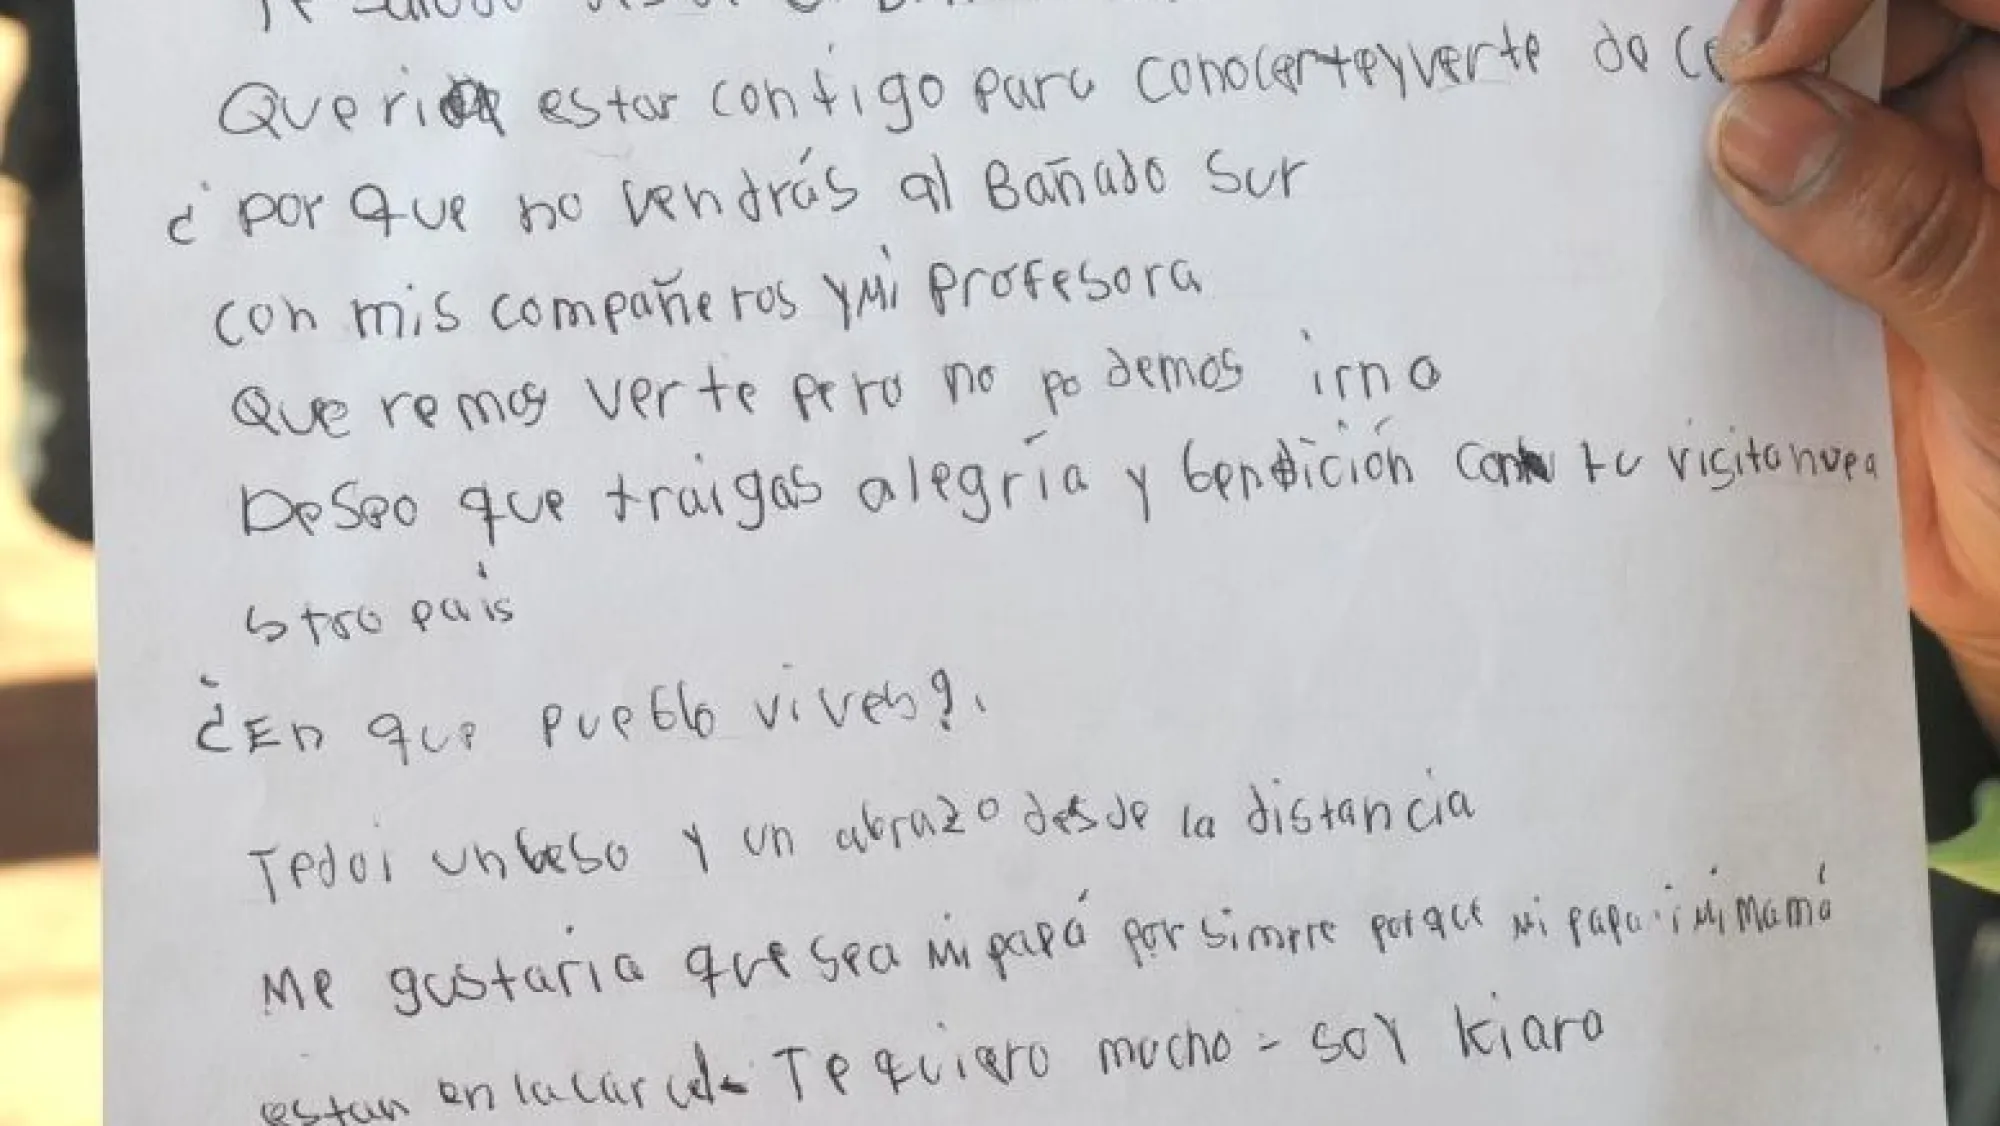 Te saludo
Queria estar contigo para conocerteyverte de ce
¿por que no vendrás al Bañado Sur
con mis compañeros y mi profesora
Queremos verte pero no podemos irno
Deseo que traigas alegría y bendición con tu visitanuea
stro pais
¿En que pueblo vives?.
Tedoi unbeso y un abrazo desde la distancia
Me gustaria que sea mi papá por simpre porque mi papa i mi mamá
estan en lacarcel Te quiero mucho - soy kiara